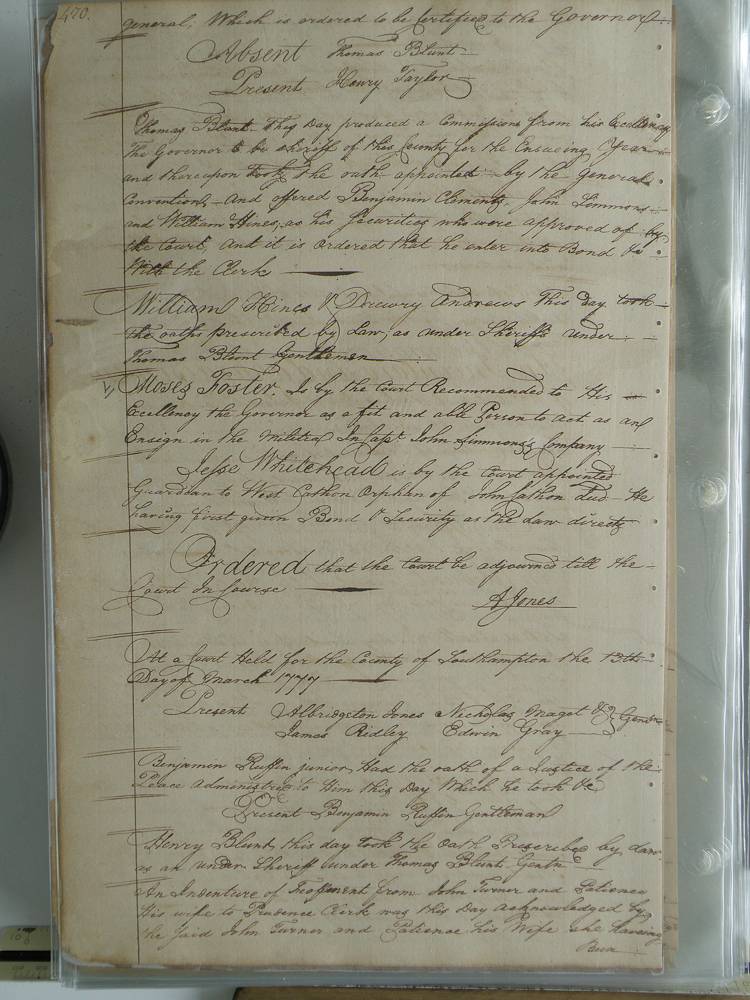 470.
general, Which is ordered to be Certified to the Governor
Absent Thomas Blunt
Present Henry Taylor
Thomas Blunt This Day produced a Commission from his Excellency
The Governor to be sheriff of this County for the Ensueing Year
and thereupon Took the oath appointed by the General
Convention, and offered Benjamin Clements, John Simmons
and William Hines, as his Securities who were approved of by
the Court, and it is ordered that he enter into Bond &c
With the Clerk
William Hines & Drewry Andrews This day took
the oaths prescribed by Law, as under Sheriffs under
Thomas Blunt Gentlemen
Moses Foster. Is by the Court Recommended to His
Excellency the Governor as a fit and able Person to act as an
Ensign in the Militia In Capt. John Simmons's Company
Jesse Whitehead is by the Court appointed
Guardian to West Cathon Orphan of John Cathon decd. He
having first given Bond & Security as the Law directs
Ordered that the Court be adjourned till the
Court In Course
A Jones
At a Court Held for the County of Southampton the 13th
Day of March 1777
Present Albridgston Jones Nicholas Maget & Gentn
James Ridley Edwin Gray
Benjamin Ruffin junior, Had the oath of a Justice of the
Peace Administred to Him this Day Which he took &c
Present Benjamin Ruffin Gentleman
Henry Blunt this day took the Oath Prescribed by Law
as an under Sheriff under Thomas Blunt Gentn
An Indenture of Feoffment from John Turner and Patience
His wife to Prudence Clerk was this Day acknowledged by
the said John Turner and Patience his Wife she haveing
Been